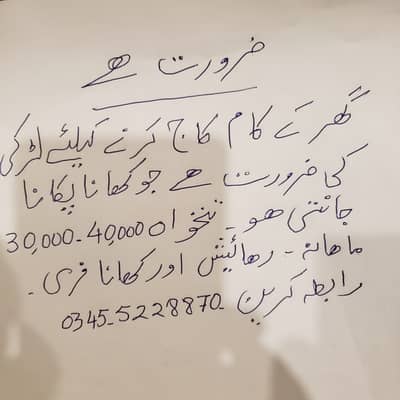 ضرورت ہے
گھر کے کام کاج کرنے کیلئے لڑکی
کی ضرورت ہے جو کھانا پکانا
جانتی ھو۔ تنخواہ 40,000 - 30,000
ماھانہ - رھائیش اور کھانا فری -
رابطہ کریں - 0345-5228870